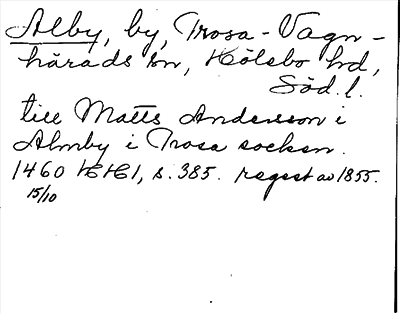 Alby, by, Trosa-Vagn-
härads sn, Hölebo hd,
Söd. l.
till Matts Andersson i
Almby i Trosa socken.
1460 HH1, s. 385. regest av 1855.
15/10